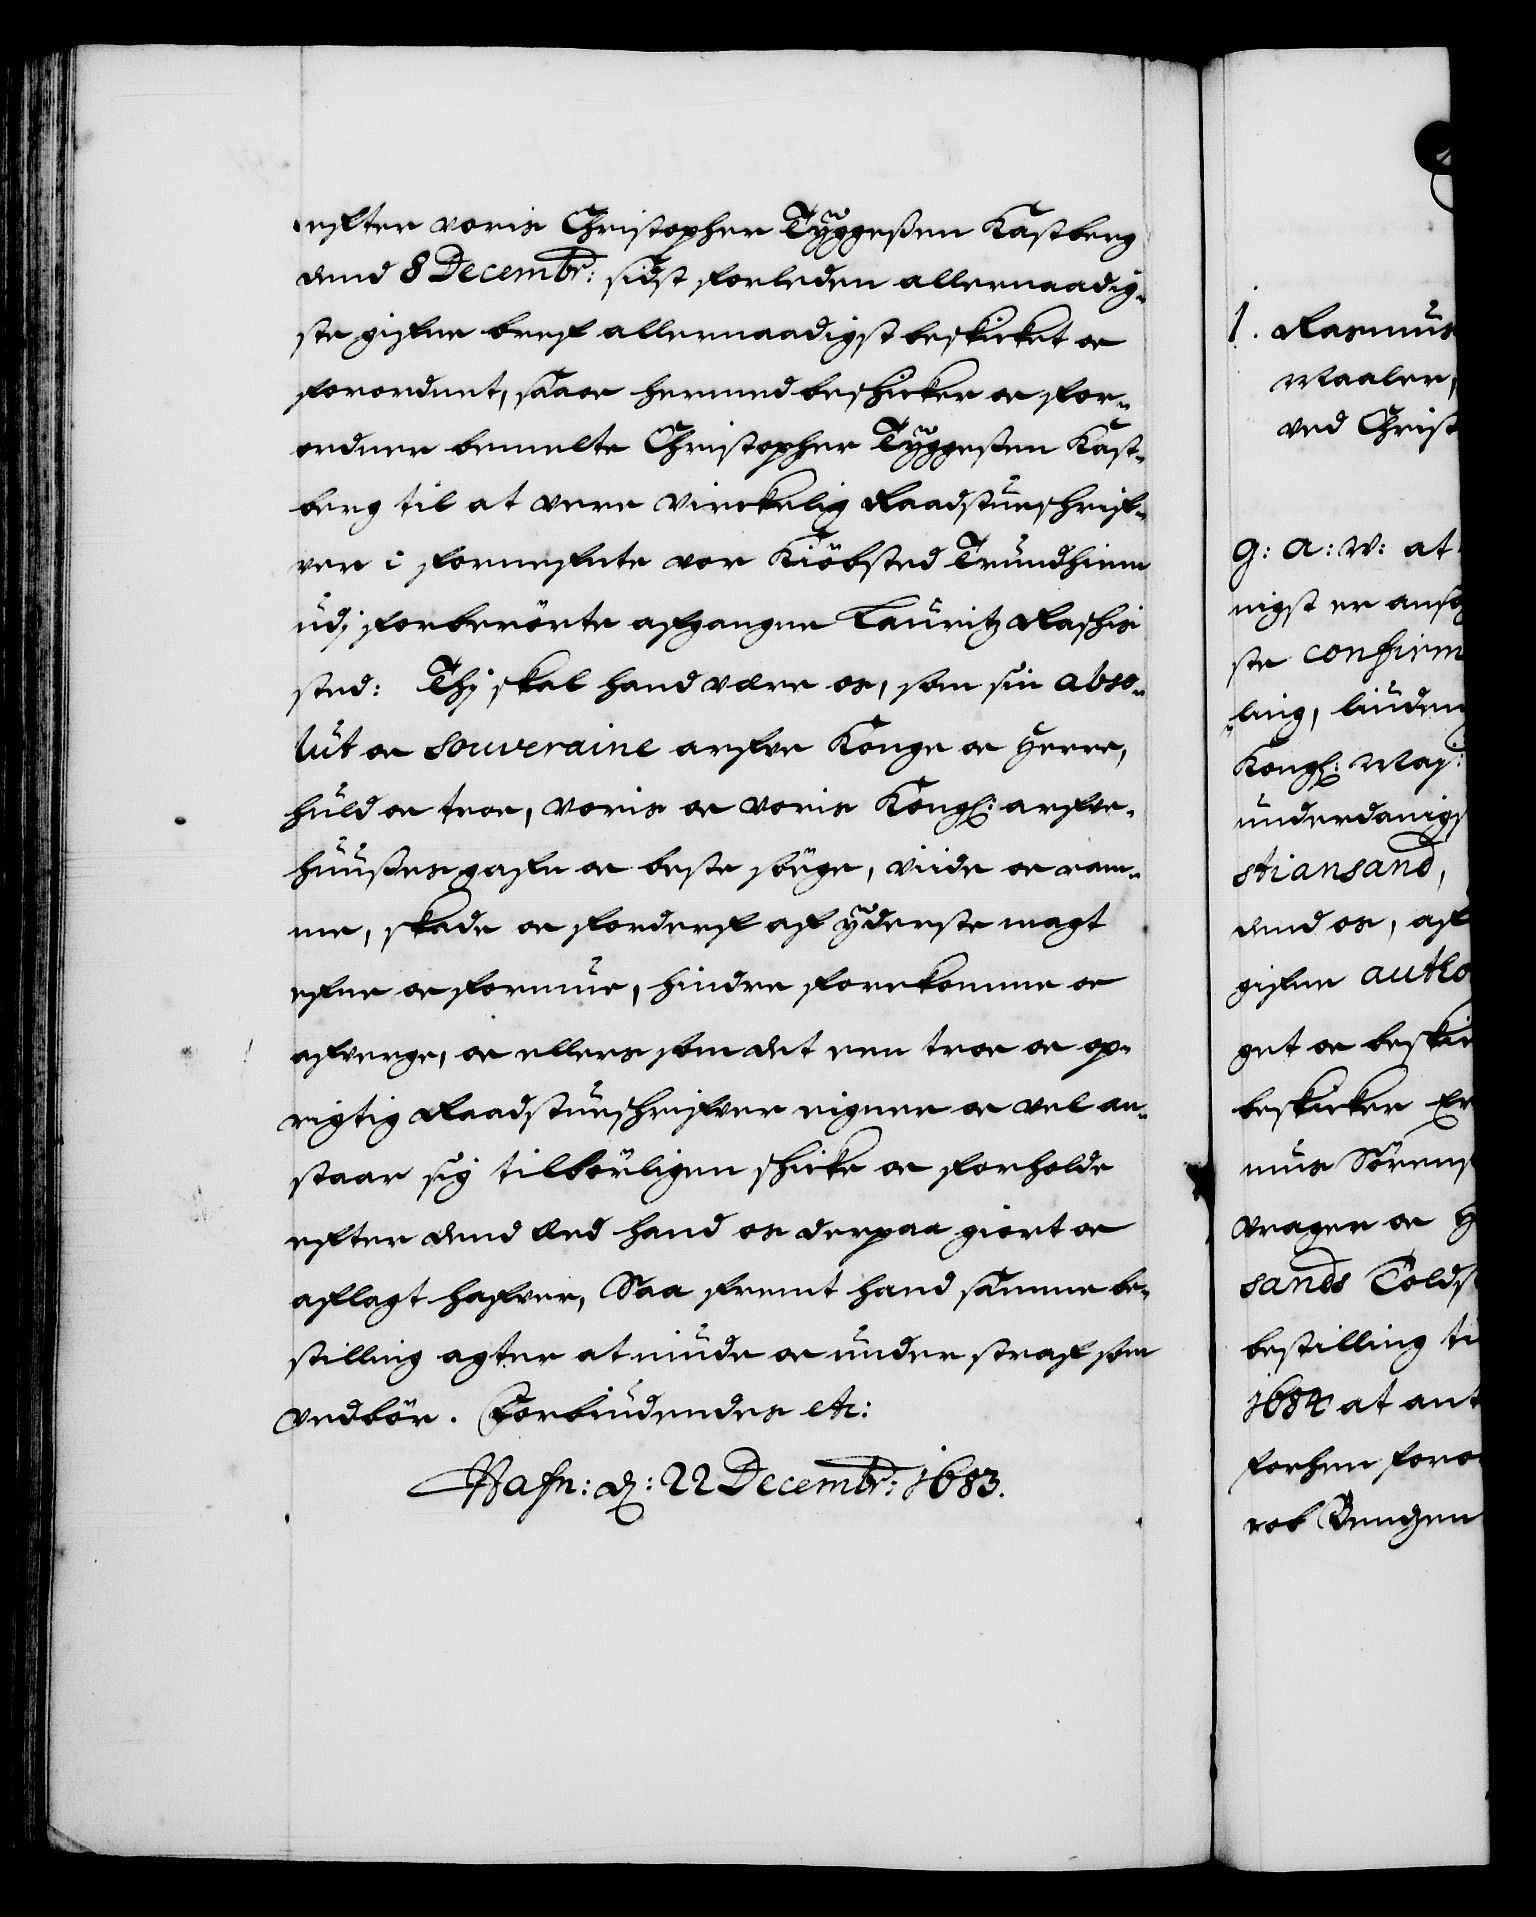 efter voris Christopher Tÿggeßen Kastberg
dend 8 Decembr: sidst forleden allernaadig-
ste gifne bref allernaadigst beskicket oc
forordnet, saa oc hermed beskicker oc for-
ordner bemelte Christopher Tÿggeßen Kast-
berg til at vere virckelig Raadstueskrif-
ver i fornefnte vor Kiöbsted Trundhiem
udj forberörte afgangne Lauritz Raskis
sted: Thj skal hand være os, som sin abso-
lut oc souveraine arfve Konge oc Herre,
huld oc troe, voris oc voris Kongl: arfve-
huußes gafn oc beste söge, viide oc ram-
me, skade oc forderf af ÿderste magt
efne oc formue, hindre forekomme oc
afverge, oc ellers som det een troe oc op-
rigtig Raadstueskrifver eigner oc vel an-
staar sig tilbörligen skicke oc forholde
efter dend Eed hand os derpaa giort oc
aflagt hafver, Saa fremt hand samme be-
stilling agter at niude oc under straf som
vedbör. Forbiudendes etc:
Hafn: d: 22 Decembr: 1683.
1. Rasmus
Maaler,
ved Christ
G: A: V: at
nigst er ansög
ste confirm
ling, liuden
Kongl: May:
underdanigs
stiansand,
dend os, af
gifne autho
get oc beskic
beskicker Er
mus Sörens
Vrager oc
sands Tolds
bestilling ti
1684 at ant
forhen foror
cob Bengen